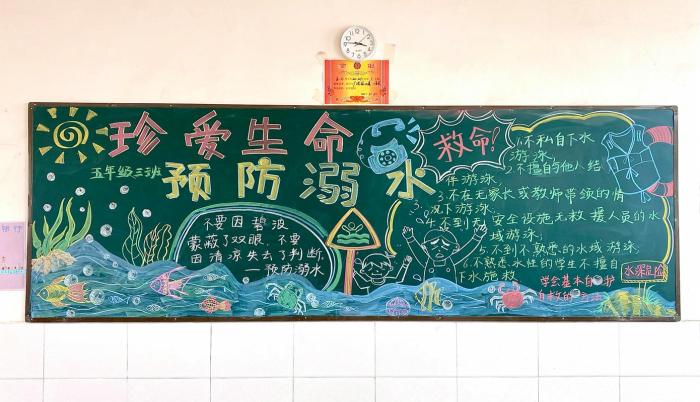 珍爱生命
五年级三班
预防溺水
救命!
不要因碧波
蒙蔽了双眼,不要
因清凉失去了判断
—预防溺水
1.不私自下水
游泳
2.不擅自与他人结
伴游泳
3.不在无家长或教师带领的情
况下游泳
4.不到无安全设施无救援人员的水
域游泳;
5.不到不熟悉的水域游泳;
6.不熟悉水性的学生不擅自
下水施救
学会基本自护
自救的方法
水深危险